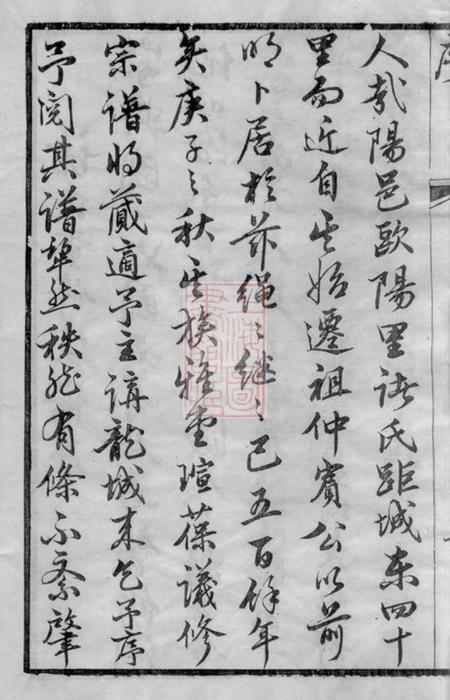 人哉陽邑歐陽里諸氏距城東四十
里而近自其始遷祖仲賓公以前
明卜居於茲繩繩繼繼已五百餘年
矣庚子之秋其族雅堂瑄葆議修
宗譜將蕆適予主講龍城来乞予序
予閱其譜犂然秩然有條不紊肇